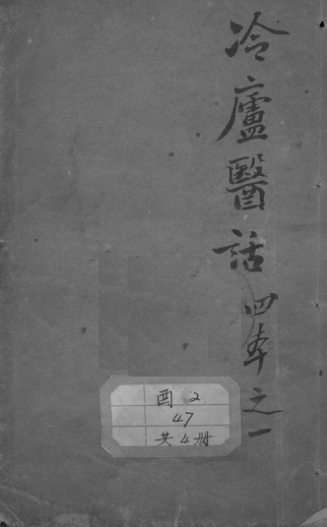 冷廬醫話四本之一
酉 2
47
共4册